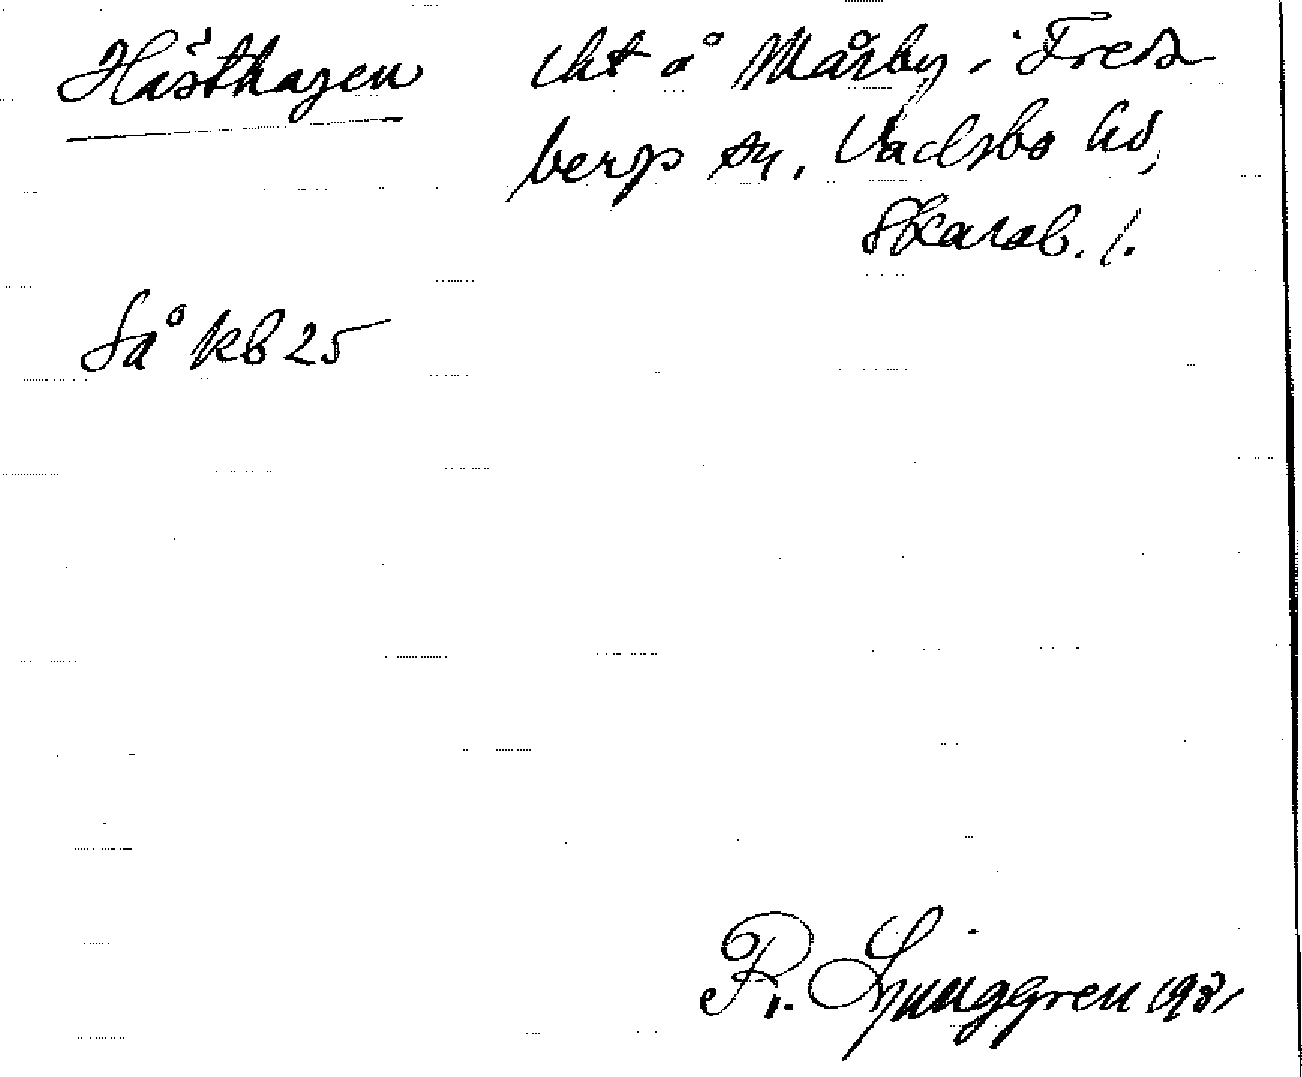 Hästhagen lht å Mårby i Freds
bergs sn, Vadsbo hd,
Skarab. l.
Så kb 25
R. Ljunggren 1931